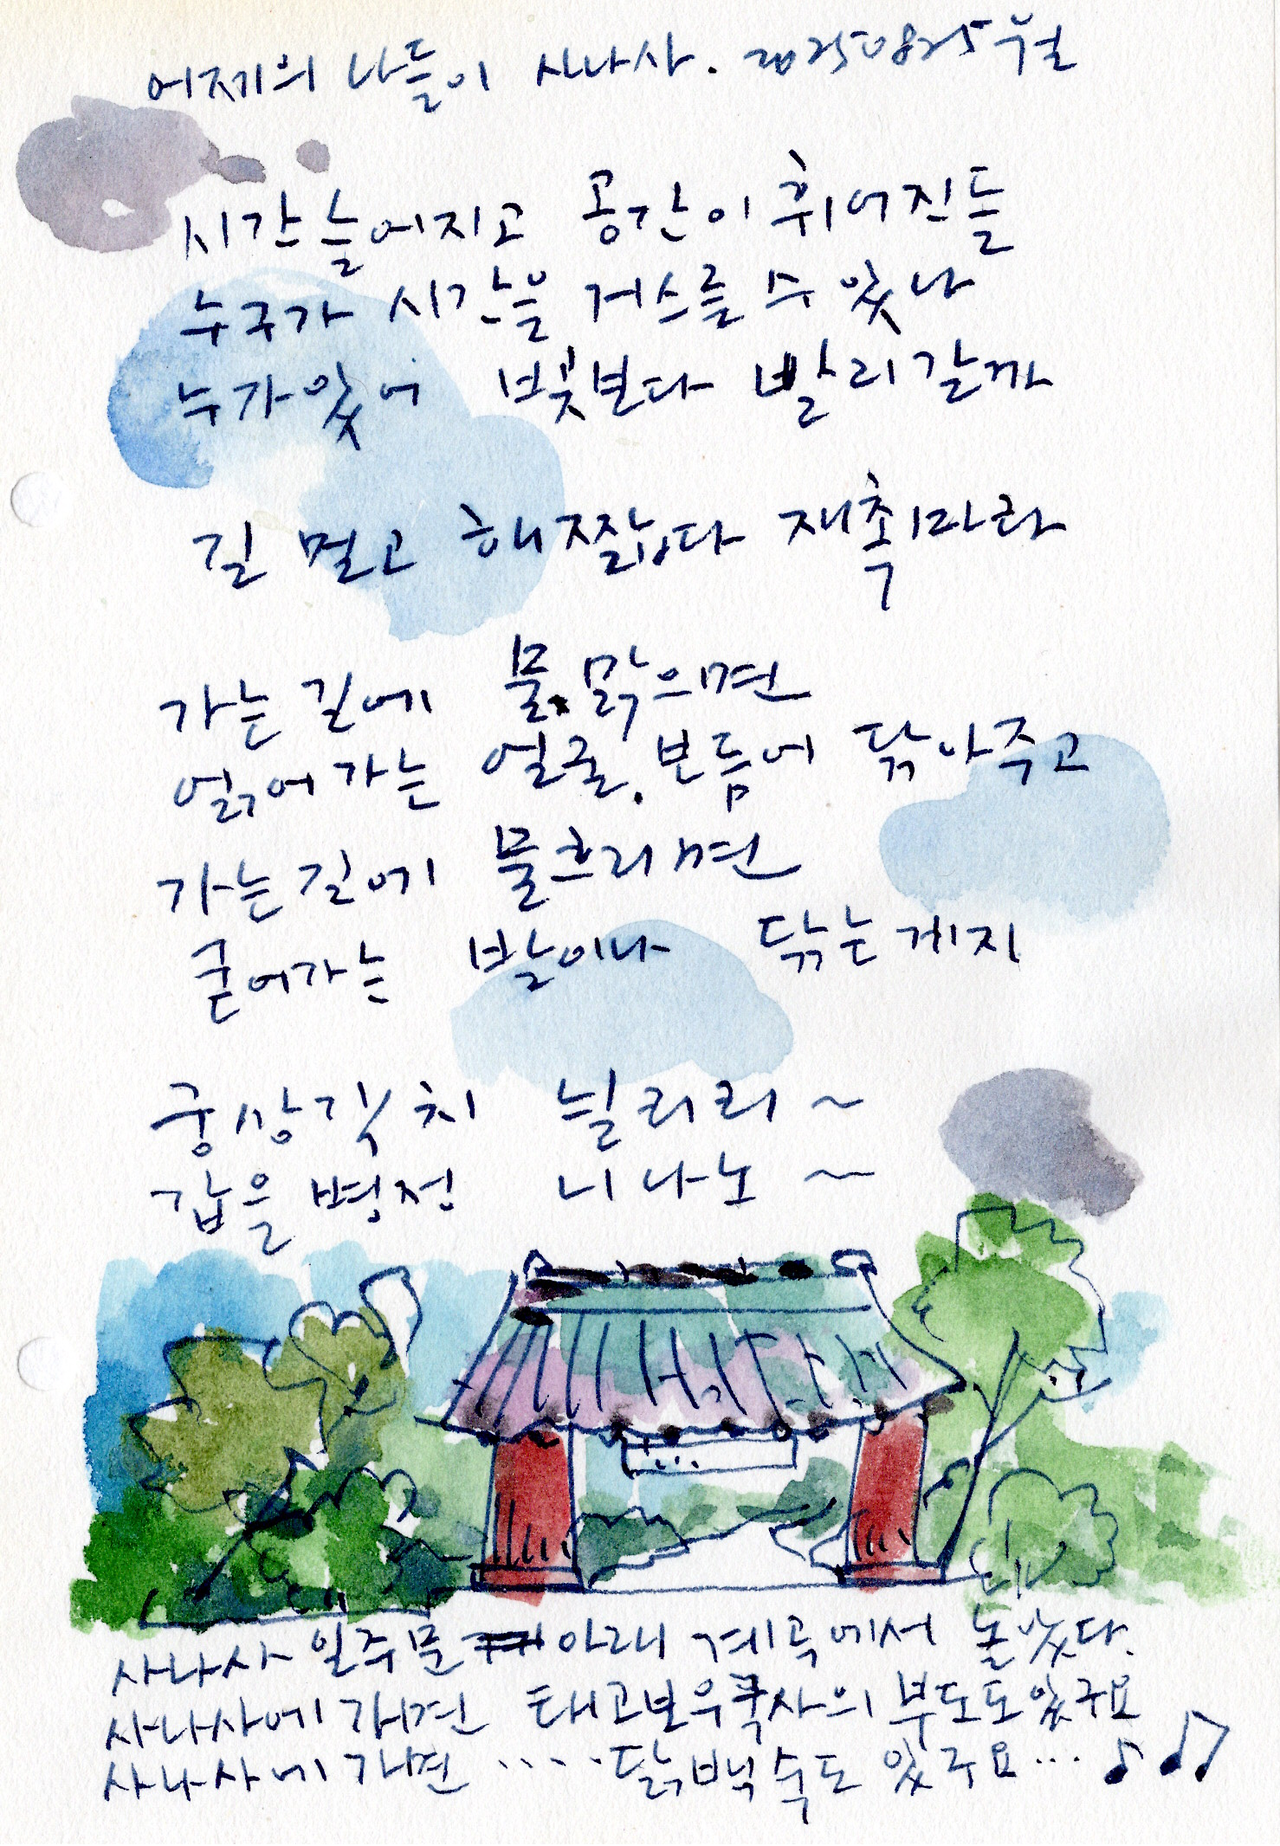 어제의 나들이 사나사. 20250825 월
시간 늘어지고 공간이 휘어진들
누구가 시간을 거스를 수 있나
누가있어 빛보다 빨리갈까
길 멀고 해 짧다 재촉마라
가는길에 물 맑으면
얽어가는 얼굴. 보듬어 닦아주고
가는길에 물흐르면
굳어가는 발이나 닦는게지
궁상각치 늴리리~
갑을병정 니나노~
사나사 일주문 아래 계곡에서 놀았다.
사나사에 가면 태고보우국사의 부도도있구요
사나사에 가면 ····닭백숙도 있구요···